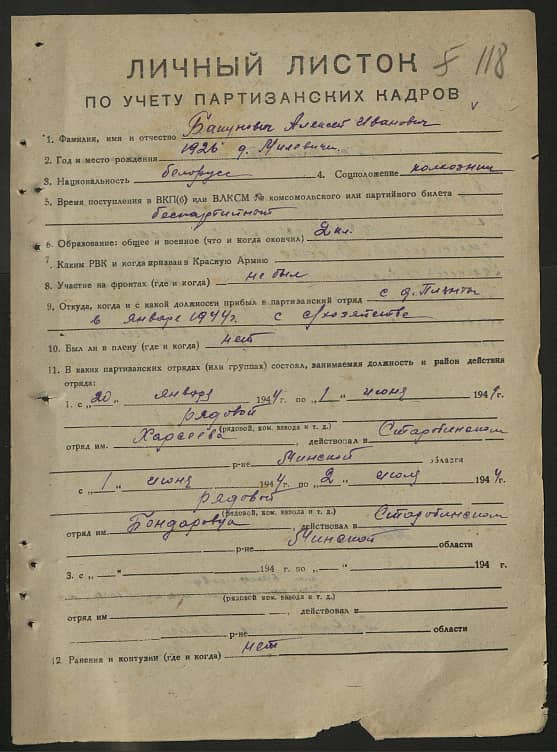 ЛИЧНЫЙ ЛИСТОК 118
ПО УЧЕТУ ПАРТИЗАНСКИХ КАДРОВ
1. Фамилия, имя и отчество Бакунович Алексей Иванович
2. Год и место рождения 1926 д. Милевичи
3. Национальность белорусс 4. Соцположение колхозник
5. Время поступления в ВКП(б) или ВЛКСМ № комсомольского или партийного билета
беспартийный
6. Образование: общее и военное (что и когда окончил) 2 кл.
7. Каким РВК и когда призван в Красную Армию
8. Участие на фронтах (где и когда) не был
9. Откуда, когда и с какой должности прибыл в партизанский отряд с д.
в январе 1944г. с с/хозяйства
10. Был ли в плену (где и когда) нет
11. В каких партизанских отрядах (или группах) состоял, занимаемая должность и район действия
отряда:
1. с „20" января 1944 г. по „1" июня 1944 г.
рядовой
(рядовой, ком. взвода и т. д.)
отряд им. , действовал в Старобинском
р-не Минской области
с „1" июня 1944 г. по „2" июля 1944 г.
рядовой
(рядовой, ком. взвода и т. д.)
отряд им. Бондаровца , действовал в Старобинском
р-не Минской области
3. с „—" 194 г. по „—" 194 г.
(рядовой ком. взвода и т. д.)
отряд им , действовал в
р-не области
12. Ранения и контузии (где и когда) нет